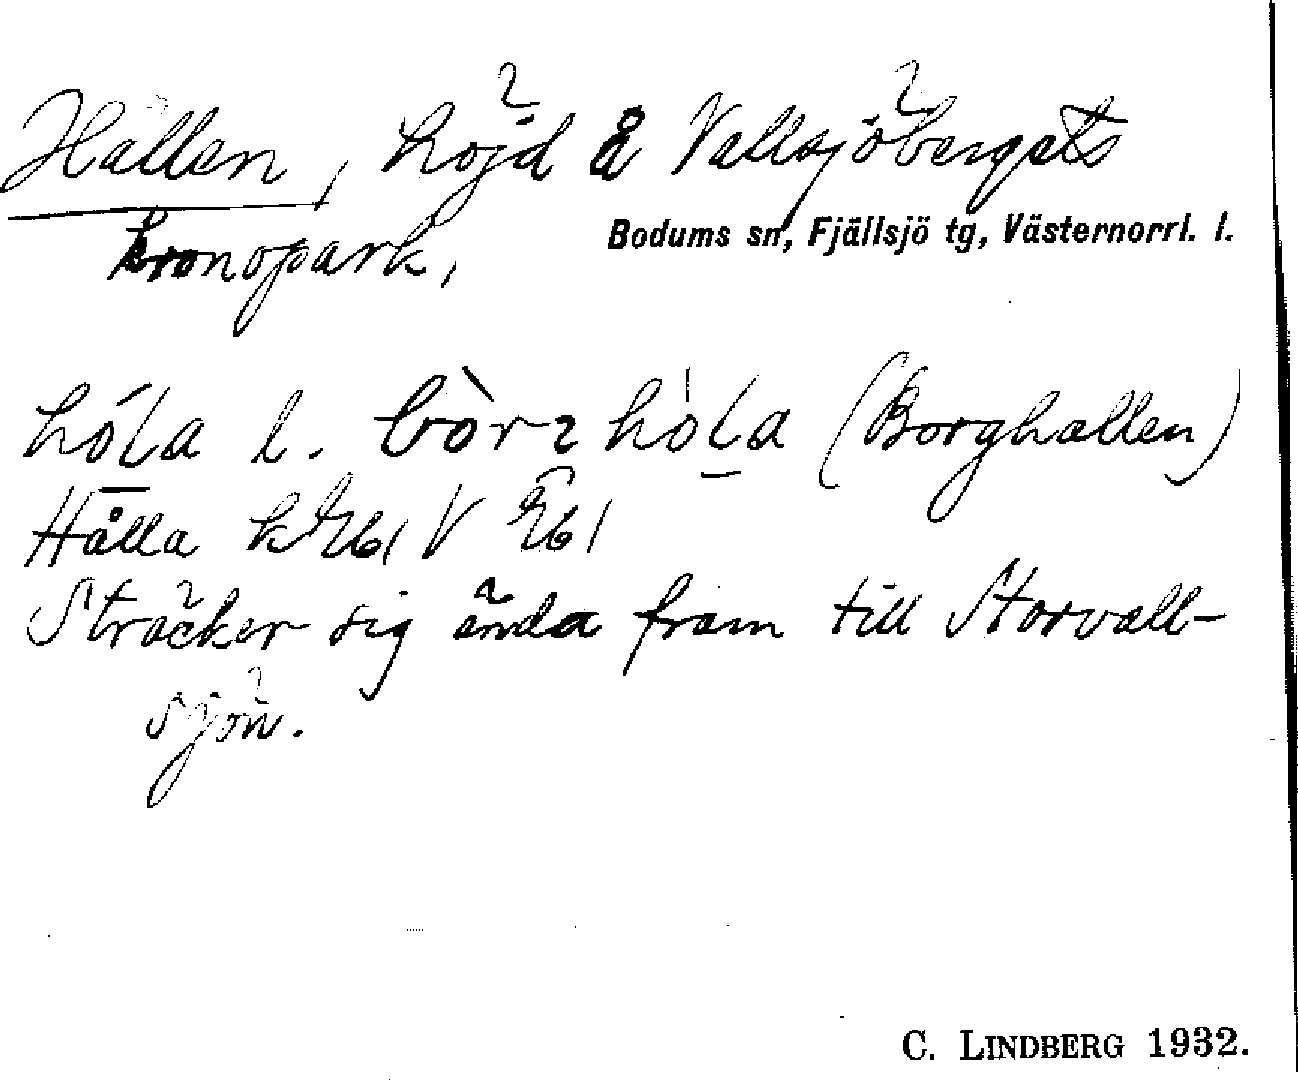 Hallen, höjd å Vallsjöbergets
kronopark,
Bodums sn, Fjällsjö tg, Västernorrl. l.
hóla l. bòrz hòla (Borghallen)
Hålla
Sträcker sig ända fram till Storvall-
sjön.
C. LINDBERG 1932.